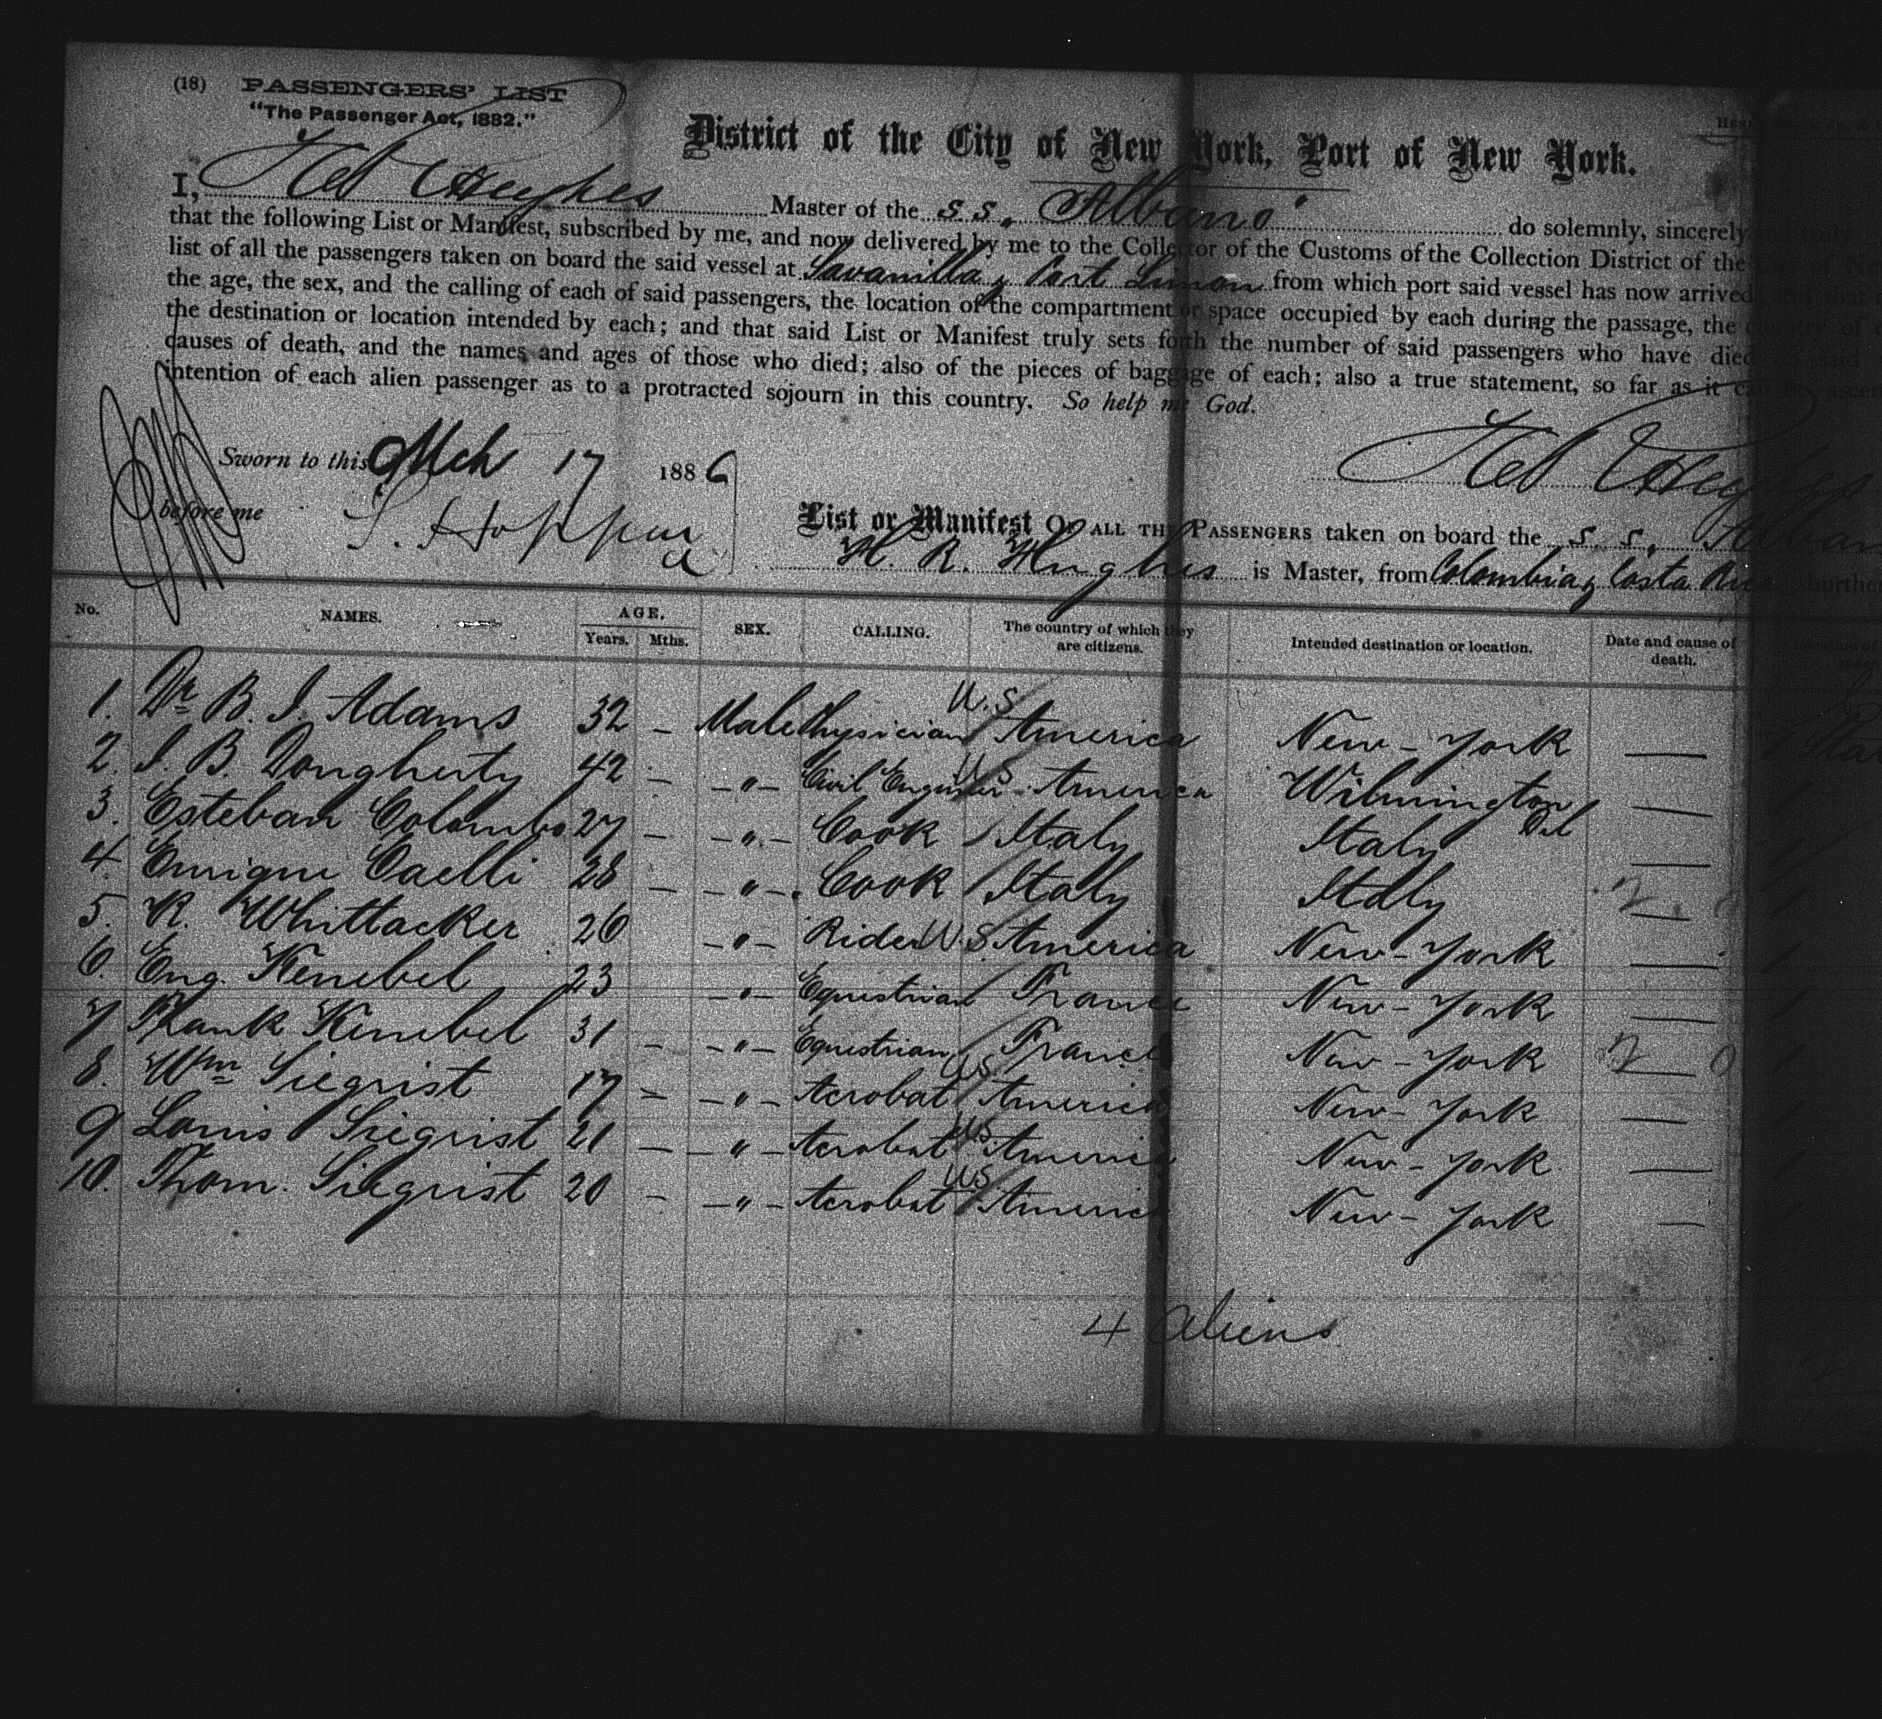 (18) PASSENGERS' LIST
"The Passenger Act, 1882."
District of the City of New York, Port of New York.
I, Hughes Master of the S.S. Albano do solemnly, sincerely
that the following List or Manifest, subscribed by me, and now delivered by me to the Collector of the Customs of the Collection District of the
list of all the passengers taken on board the said vessel at Savanilla & Port Limon from which port said vessel has now arrived
the age, the sex, and the calling of each of said passengers, the location of the compartment or space occupied by each during the passage, the
the destination or location intended by each; and that said List or Manifest truly sets forth the number of said passengers who have died
causes of death, and the names and ages of those who died; also of the pieces of baggage of each; also a true statement, so far as it can be
intention of each alien passenger as to a protracted sojourn in this country. So help me God.
Sworn to this Mch 17 1886
before me
List or Manifest OF ALL THE PASSENGERS taken on board the S.S. Albano
H. R. Hughes is Master, from Colombia & Costa Rica burthen
No. NAMES. AGE. Years. Mths. SEX. CALLING. The country of which they are citizens. Intended destination or location. Date and cause of death.
1. Dr B. J. Adams 32 — Male Physician U.S America New-York —
2. J. B. Dougherty 42 — — " — Civil Engineer U.S America Wilmington Del —
3. Esteban Colombo 27 — — " — Cook Italy Italy —
4. Enrique Caelli 28 — — " — Cook Italy Italy —
5. R. Whittacker 26 — " — Rider U.S. America New-York —
6. Eug. Kenebel 23 — " — Equestrian France New-York —
7 Frank Kenebel 31 — — " — Equestrian France New-York —
8. Wm Siegrist 17 — — " — Acrobat U.S America New-York —
9 Louis Siegrist 21 — — " — Acrobat U.S. America New-York —
10. Thom. Siegrist 20 — — " — Acrobat U.S America New-York —
4 aliens